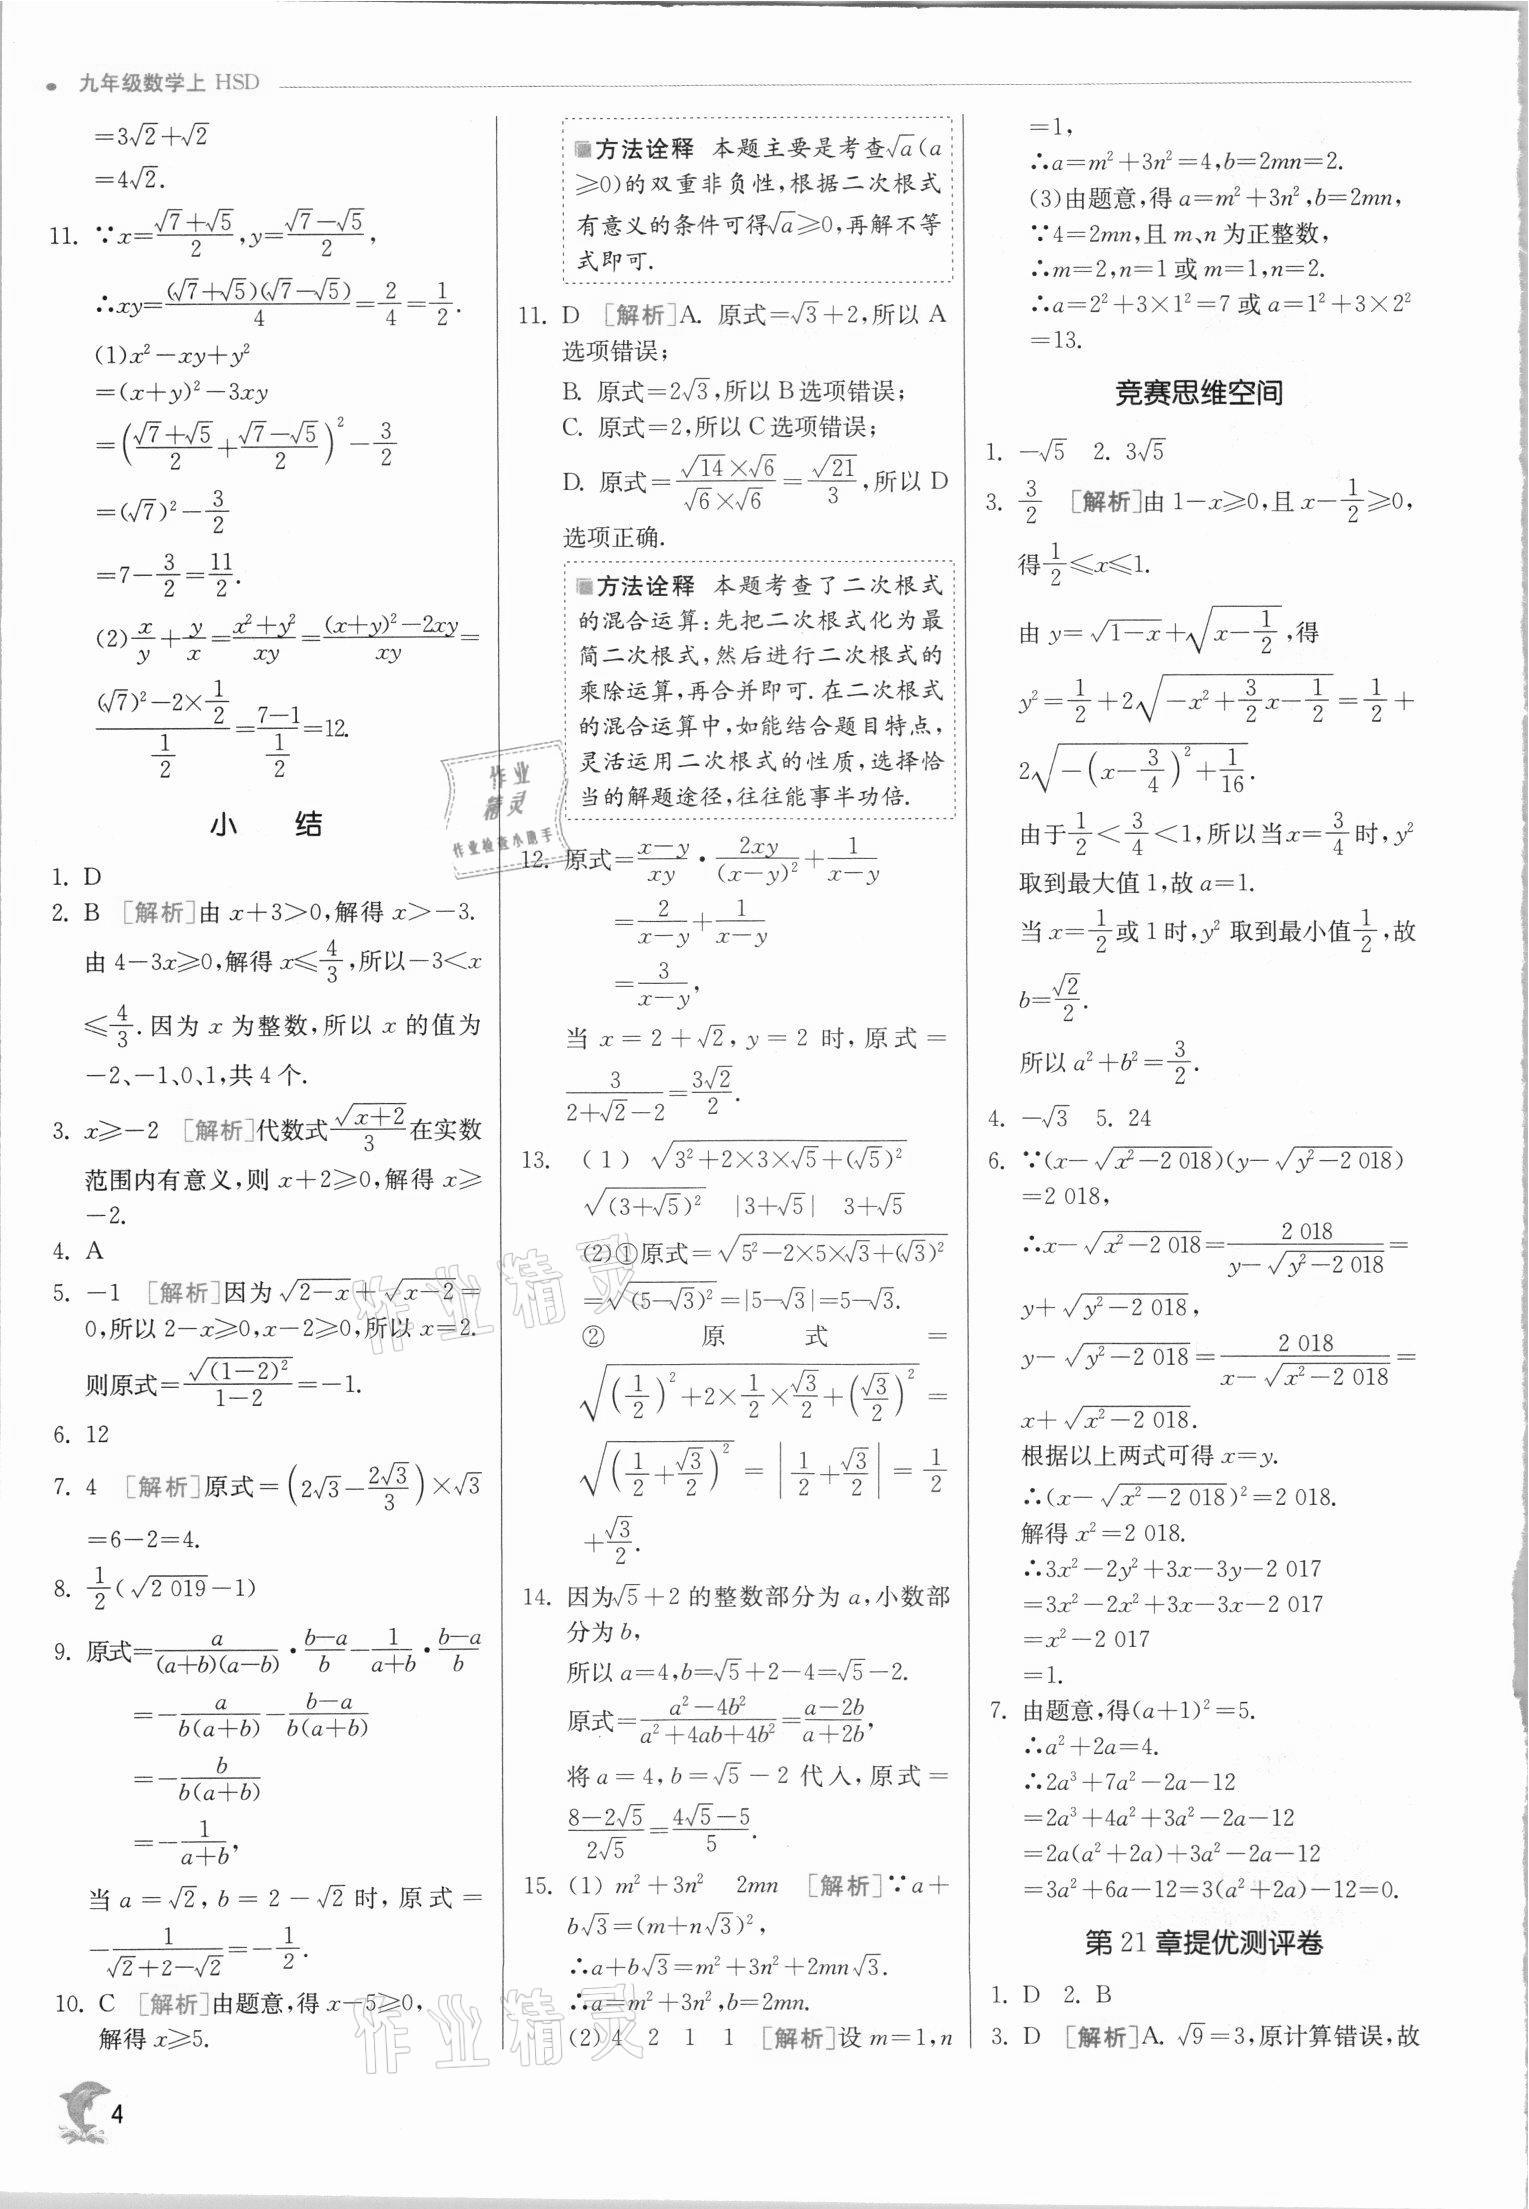 九年级数学上 HSD
=3√2+√2
=4√2.
11. ∵x=(√7+√5)/2,y=(√7-√5)/2,
∴xy=(√7+√5)(√7-√5)/4=2/4=1/2.
(1)x²-xy+y²
=(x+y)²-3xy
=((√7+√5)/2+(√7-√5)/2)²-3/2
=(√7)²-3/2
=7-3/2=11/2.
(2)x/y+y/x=(x²+y²)/xy=((x+y)²-2xy)/xy=
((√7)²-2×1/2)/(1/2)=(7-1)/(1/2)=12.
小 结
1. D
2. B [解析]由 x+3>0,解得 x>-3.
由 4-3x≥0,解得 x≤4/3,所以-3<x
≤4/3.因为 x 为整数,所以 x 的值为
-2、-1、0、1,共 4 个.
3. x≥-2 [解析]代数式√(x+2)/3在实数
范围内有意义,则 x+2≥0,解得 x≥
-2.
4. A
5. -1 [解析]因为√(2-x)+√(x-2)=
0,所以 2-x≥0,x-2≥0,所以 x=2.
则原式=√((1-2)²)/(1-2)=-1.
6. 12
7. 4 [解析]原式=(2√3-2√3/3)×√3
=6-2=4.
8. 1/2(√2 019-1)
9. 原式=a/((a+b)(a-b))·(b-a)/b-1/(a+b)·(b-a)/b
=-a/(b(a+b))-(b-a)/(b(a+b))
=-b/(b(a+b))
=-1/(a+b),
当 a=√2,b=2-√2 时,原式=
-1/(√2+2-√2)=-1/2.
10. C [解析]由题意,得 x-5≥0,
解得 x≥5.
方法诠释 本题主要是考查√a(a
≥0)的双重非负性,根据二次根式
有意义的条件可得√a≥0,再解不等
式即可.
11. D [解析]A. 原式=√3+2,所以 A
选项错误;
B. 原式=2√3,所以 B 选项错误;
C. 原式=2,所以 C 选项错误;
D. 原式=(√14×√6)/(√6×√6)=√21/3,所以 D
选项正确.
方法诠释 本题考查了二次根式
的混合运算:先把二次根式化为最
简二次根式,然后进行二次根式的
乘除运算,再合并即可.在二次根式
的混合运算中,如能结合题目特点,
灵活运用二次根式的性质,选择恰
当的解题途径,往往能事半功倍.
12. 原式=(x-y)/xy·2xy/(x-y)²+1/(x-y)
=2/(x-y)+1/(x-y)
=3/(x-y),
当 x=2+√2,y=2 时,原式=
3/(2+√2-2)=3√2/2.
13. (1) √(3²+2×3×√5+(√5)²)
√((3+√5)²) |3+√5| 3+√5
(2)①原式=√(5²-2×5×√3+(√3)²)
=√((5-√3)²)=|5-√3|=5-√3.
② 原 式 =
√((1/2)²+2×1/2×√3/2+(√3/2)²)=
√((1/2+√3/2)²)=|1/2+√3/2|=1/2
+√3/2.
14. 因为√5+2 的整数部分为 a,小数部
分为 b,
所以 a=4,b=√5+2-4=√5-2.
原式=(a²-4b²)/(a²+4ab+4b²)=(a-2b)/(a+2b),
将 a=4,b=√5-2 代入,原式=
(8-2√5)/(2√5)=(4√5-5)/5.
15. (1) m²+3n² 2mn [解析]∵a+
b√3=(m+n√3)²,
∴a+b√3=m²+3n²+2mn√3.
∴a=m²+3n²,b=2mn.
(2) 4 2 1 1 [解析]设 m=1,n
=1,
∴a=m²+3n²=4,b=2mn=2.
(3)由题意,得 a=m²+3n²,b=2mn,
∵4=2mn,且 m、n 为正整数,
∴m=2,n=1 或 m=1,n=2.
∴a=2²+3×1²=7 或 a=1²+3×2²
=13.
竞赛思维空间
1. -√5 2. 3√5
3. 3/2 [解析]由 1-x≥0,且 x-1/2≥0,
得1/2≤x≤1.
由 y=√(1-x)+√(x-1/2),得
y²=1/2+2√(-x²+3/2x-1/2)=1/2+
2√(-(x-3/4)²+1/16).
由于1/2<3/4<1,所以当x=3/4时,y²
取到最大值 1,故 a=1.
当 x=1/2或 1 时,y² 取到最小值1/2,故
b=√2/2.
所以 a²+b²=3/2.
4. -√3 5. 24
6. ∵(x-√(x²-2 018))(y-√(y²-2 018))
=2 018,
∴x-√(x²-2 018)=2 018/(y-√(y²-2 018))=
y+√(y²-2 018),
y-√(y²-2 018)=2 018/(x-√(x²-2 018))=
x+√(x²-2 018).
根据以上两式可得 x=y.
∴(x-√(x²-2 018))²=2 018.
解得 x²=2 018.
∴3x²-2y²+3x-3y-2 017
=3x²-2x²+3x-3x-2 017
=x²-2 017
=1.
7. 由题意,得(a+1)²=5.
∴a²+2a=4.
∴2a³+7a²-2a-12
=2a³+4a²+3a²-2a-12
=2a(a²+2a)+3a²-2a-12
=3a²+6a-12=3(a²+2a)-12=0.
第 21 章提优测评卷
1. D 2. B
3. D [解析]A. √9=3,原计算错误,故
4
作业
精灵
作业检查小助手
作业精灵
作业精灵